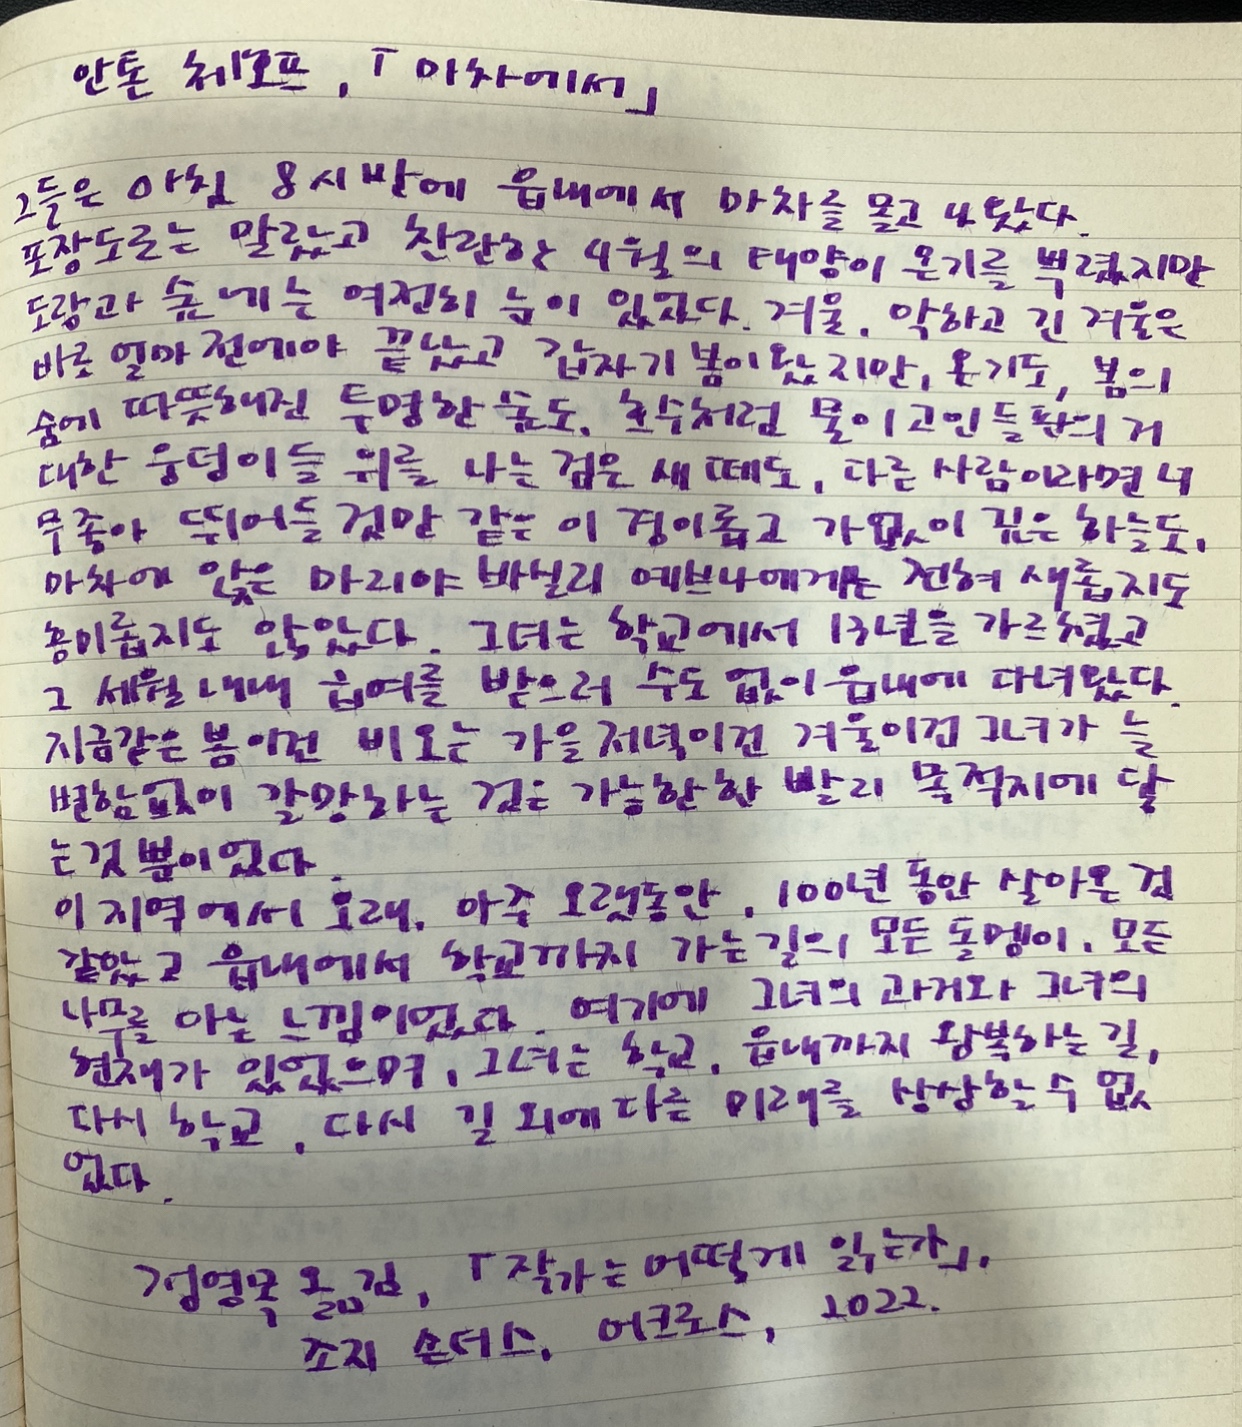 안톤 체호프, 「마차에서」
그들은 아침 8시 반에 읍내에서 마차를 몰고 나왔다.
포장도로는 말랐고 찬란한 4월의 태양이 온기를 뿌렸지만
도랑과 숲에는 여전히 눈이 있었다. 겨울, 악하고 긴 겨울은
바로 얼마 전에야 끝났고 갑자기 봄이 왔지만, 온기도, 봄의
숨에 따뜻해진 투명한 숲도, 호수처럼 물이 고인 들판의 거
대한 웅덩이들 위를 나는 검은 새 떼도, 다른 사람이라면 너
무 좋아 뛰어들 것만 같은 이 경이롭고 가없이 깊은 하늘도,
마차에 앉은 마리야 바실리예브나에게는 전혀 새롭지도
흥미롭지도 않았다. 그녀는 학교에서 13년을 가르쳤고
그 세월 내내 급여를 받으러 수도 없이 읍내에 다녀왔다.
지금같은 봄이건 비오는 가을 저녁이건 겨울이건 그녀가 늘
변함없이 갈망하는 것은 가능한한 빨리 목적지에 닿
는 것 뿐이었다.
이 지역에서 오래, 아주 오랫동안, 100년 동안 살아온 것
같았고 읍내에서 학교까지 가는 길의 모든 돌멩이, 모든
나무를 아는 느낌이었다. 여기에 그녀의 과거와 그녀의
현재가 있었으며, 그녀는 학교, 읍내까지 왕복하는 길,
다시 학교, 다시 길 외에 다른 미래를 상상할 수 없
었다.
정영목 옮김, 「작가는 어떻게 읽는가」,
조지 손더스, 어크로스, 2022.